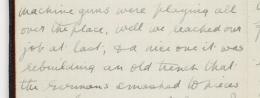 machine guns were playing all
over the place, well we reached our
job at last, & a nice one it was
rebuilding an old trench that
the Germans smashed to pieces